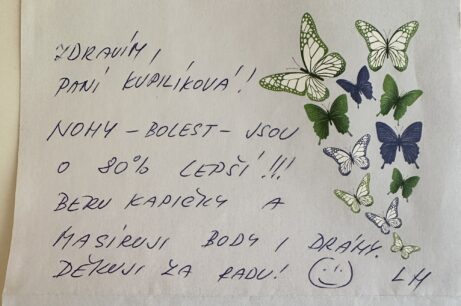 ZDRAVÍM,
PANÍ KUPILÍKOVÁ!
NOHY - BOLEST - JSOU
O 80% LEPŠÍ!!!
BERU KAPIČKY A
MASÍRUJI BODY I DRÁHY.
DĚKUJI ZA RADU! LH